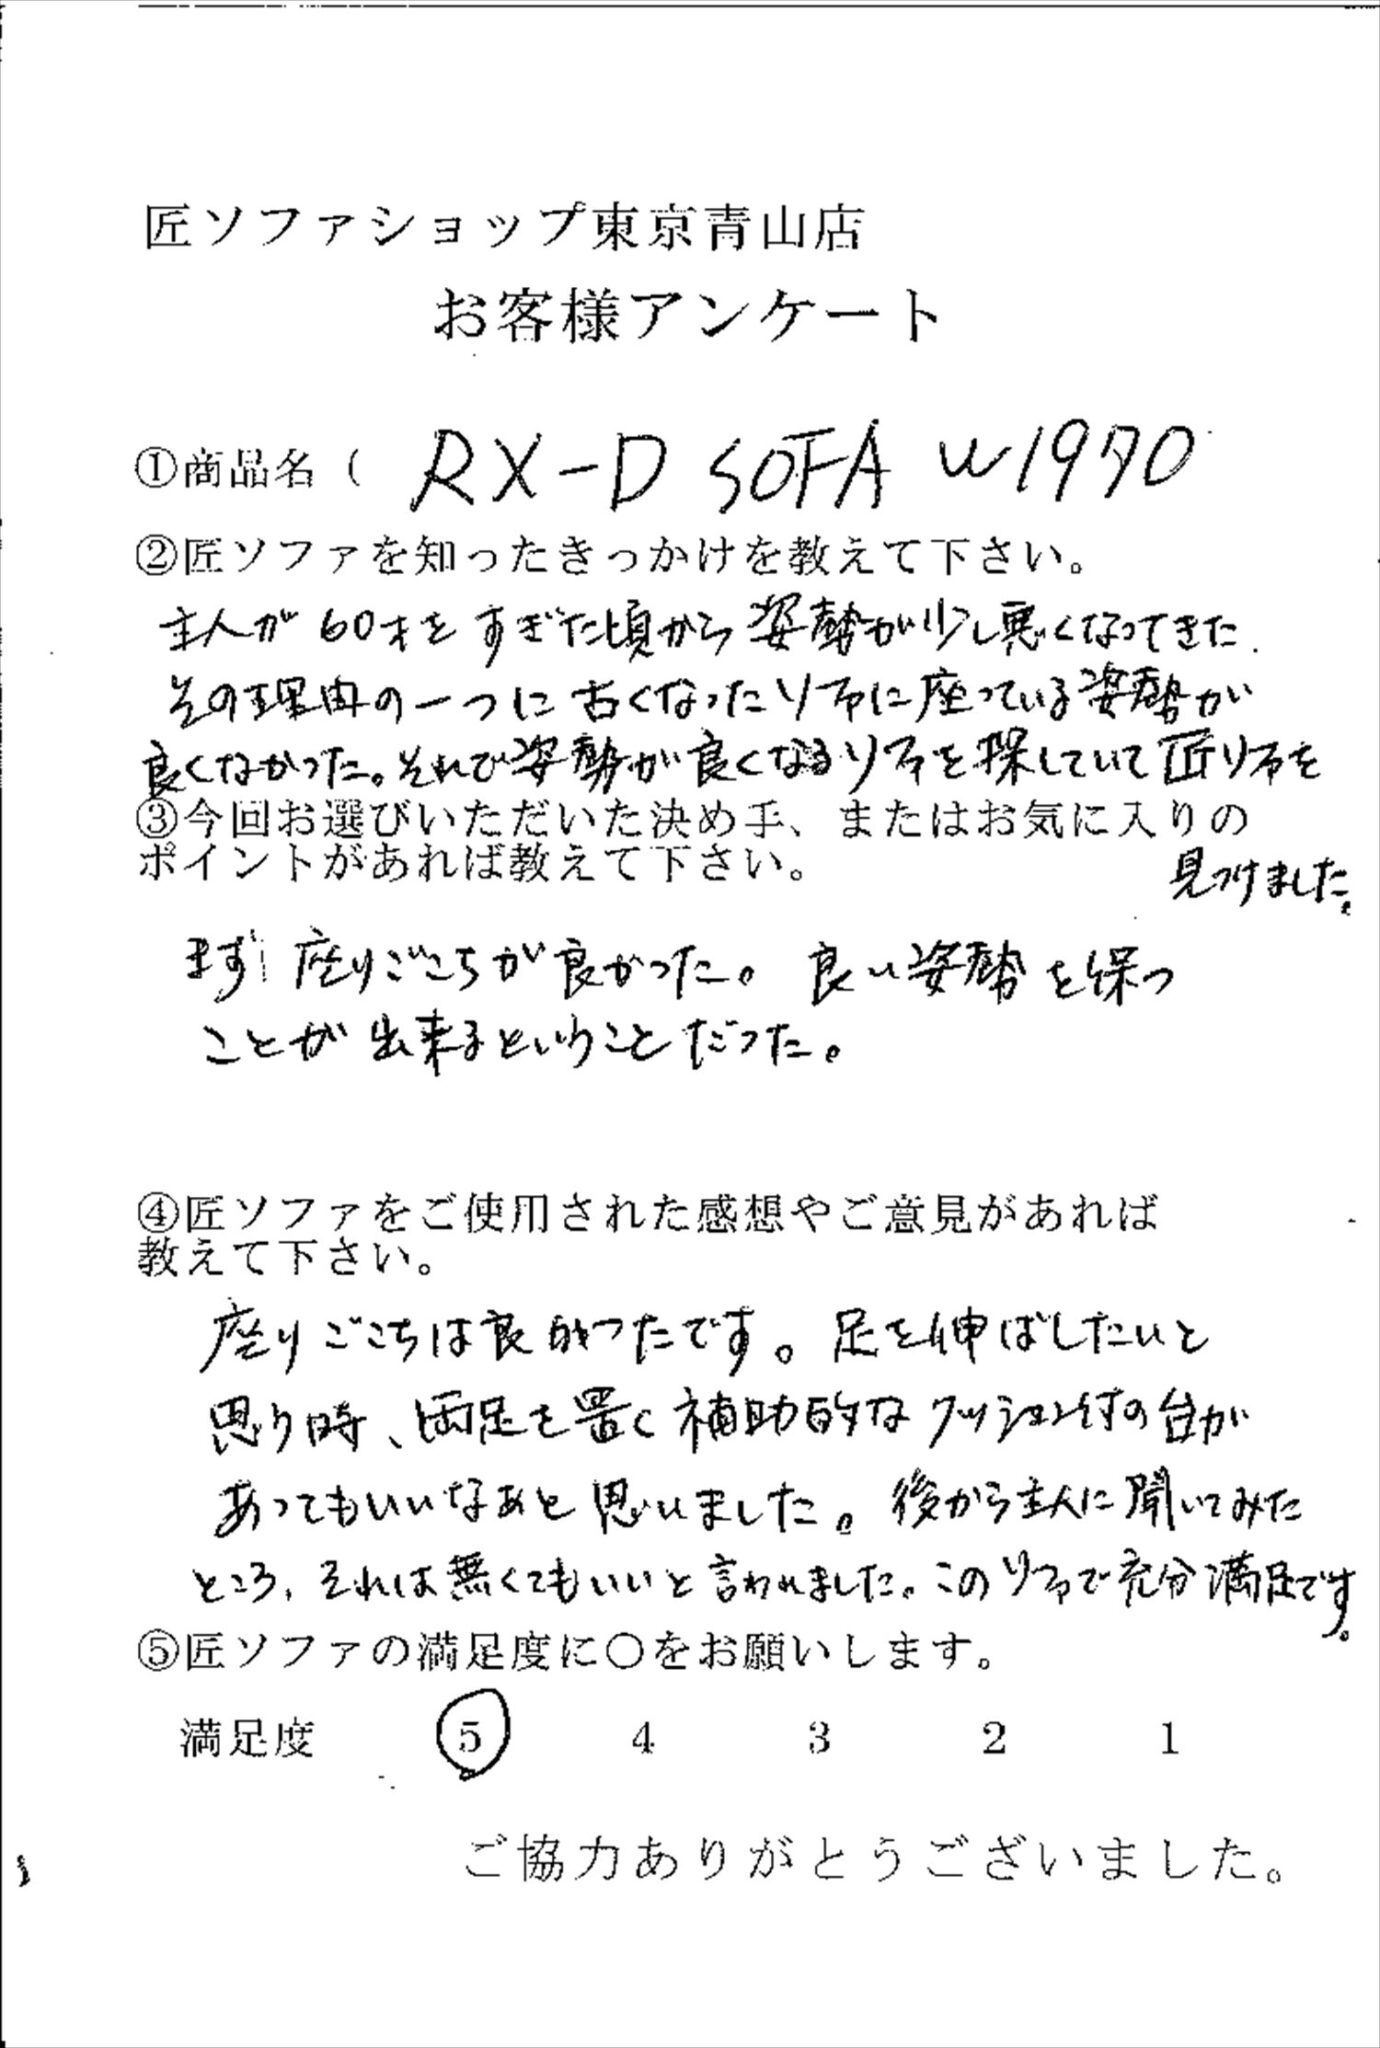 匠ソファショップ東京青山店
お客様アンケート
①商品名（ RX-D SOFA W1970
②匠ソファを知ったきっかけを教えて下さい。
主人が60才をすぎた頃から姿勢が少し悪くなってきた.
その理由の一つに古くなったソファに座っている姿勢が
良くなかった。それで姿勢が良くなるソファを探していて匠ソファを
見つけました。
③今回お選びいただいた決め手、またはお気に入りの
ポイントがあれば教えて下さい。
まず座りごこちが良かった。良い姿勢を保つ
ことが出来るということだった。
④匠ソファをご使用された感想やご意見があれば
教えて下さい。
座りごこちは良かったです。足を伸ばしたいと
思う時、両足を置く補助的なクッション付の台が
あってもいいなぁと思いました。後から主人に聞いてみた
ところ、それは無くてもいいと言われました。このソファで充分満足です。
⑤匠ソファの満足度に〇をお願いします。
満足度 5 4 3 2 1
ご協力ありがとうございました。